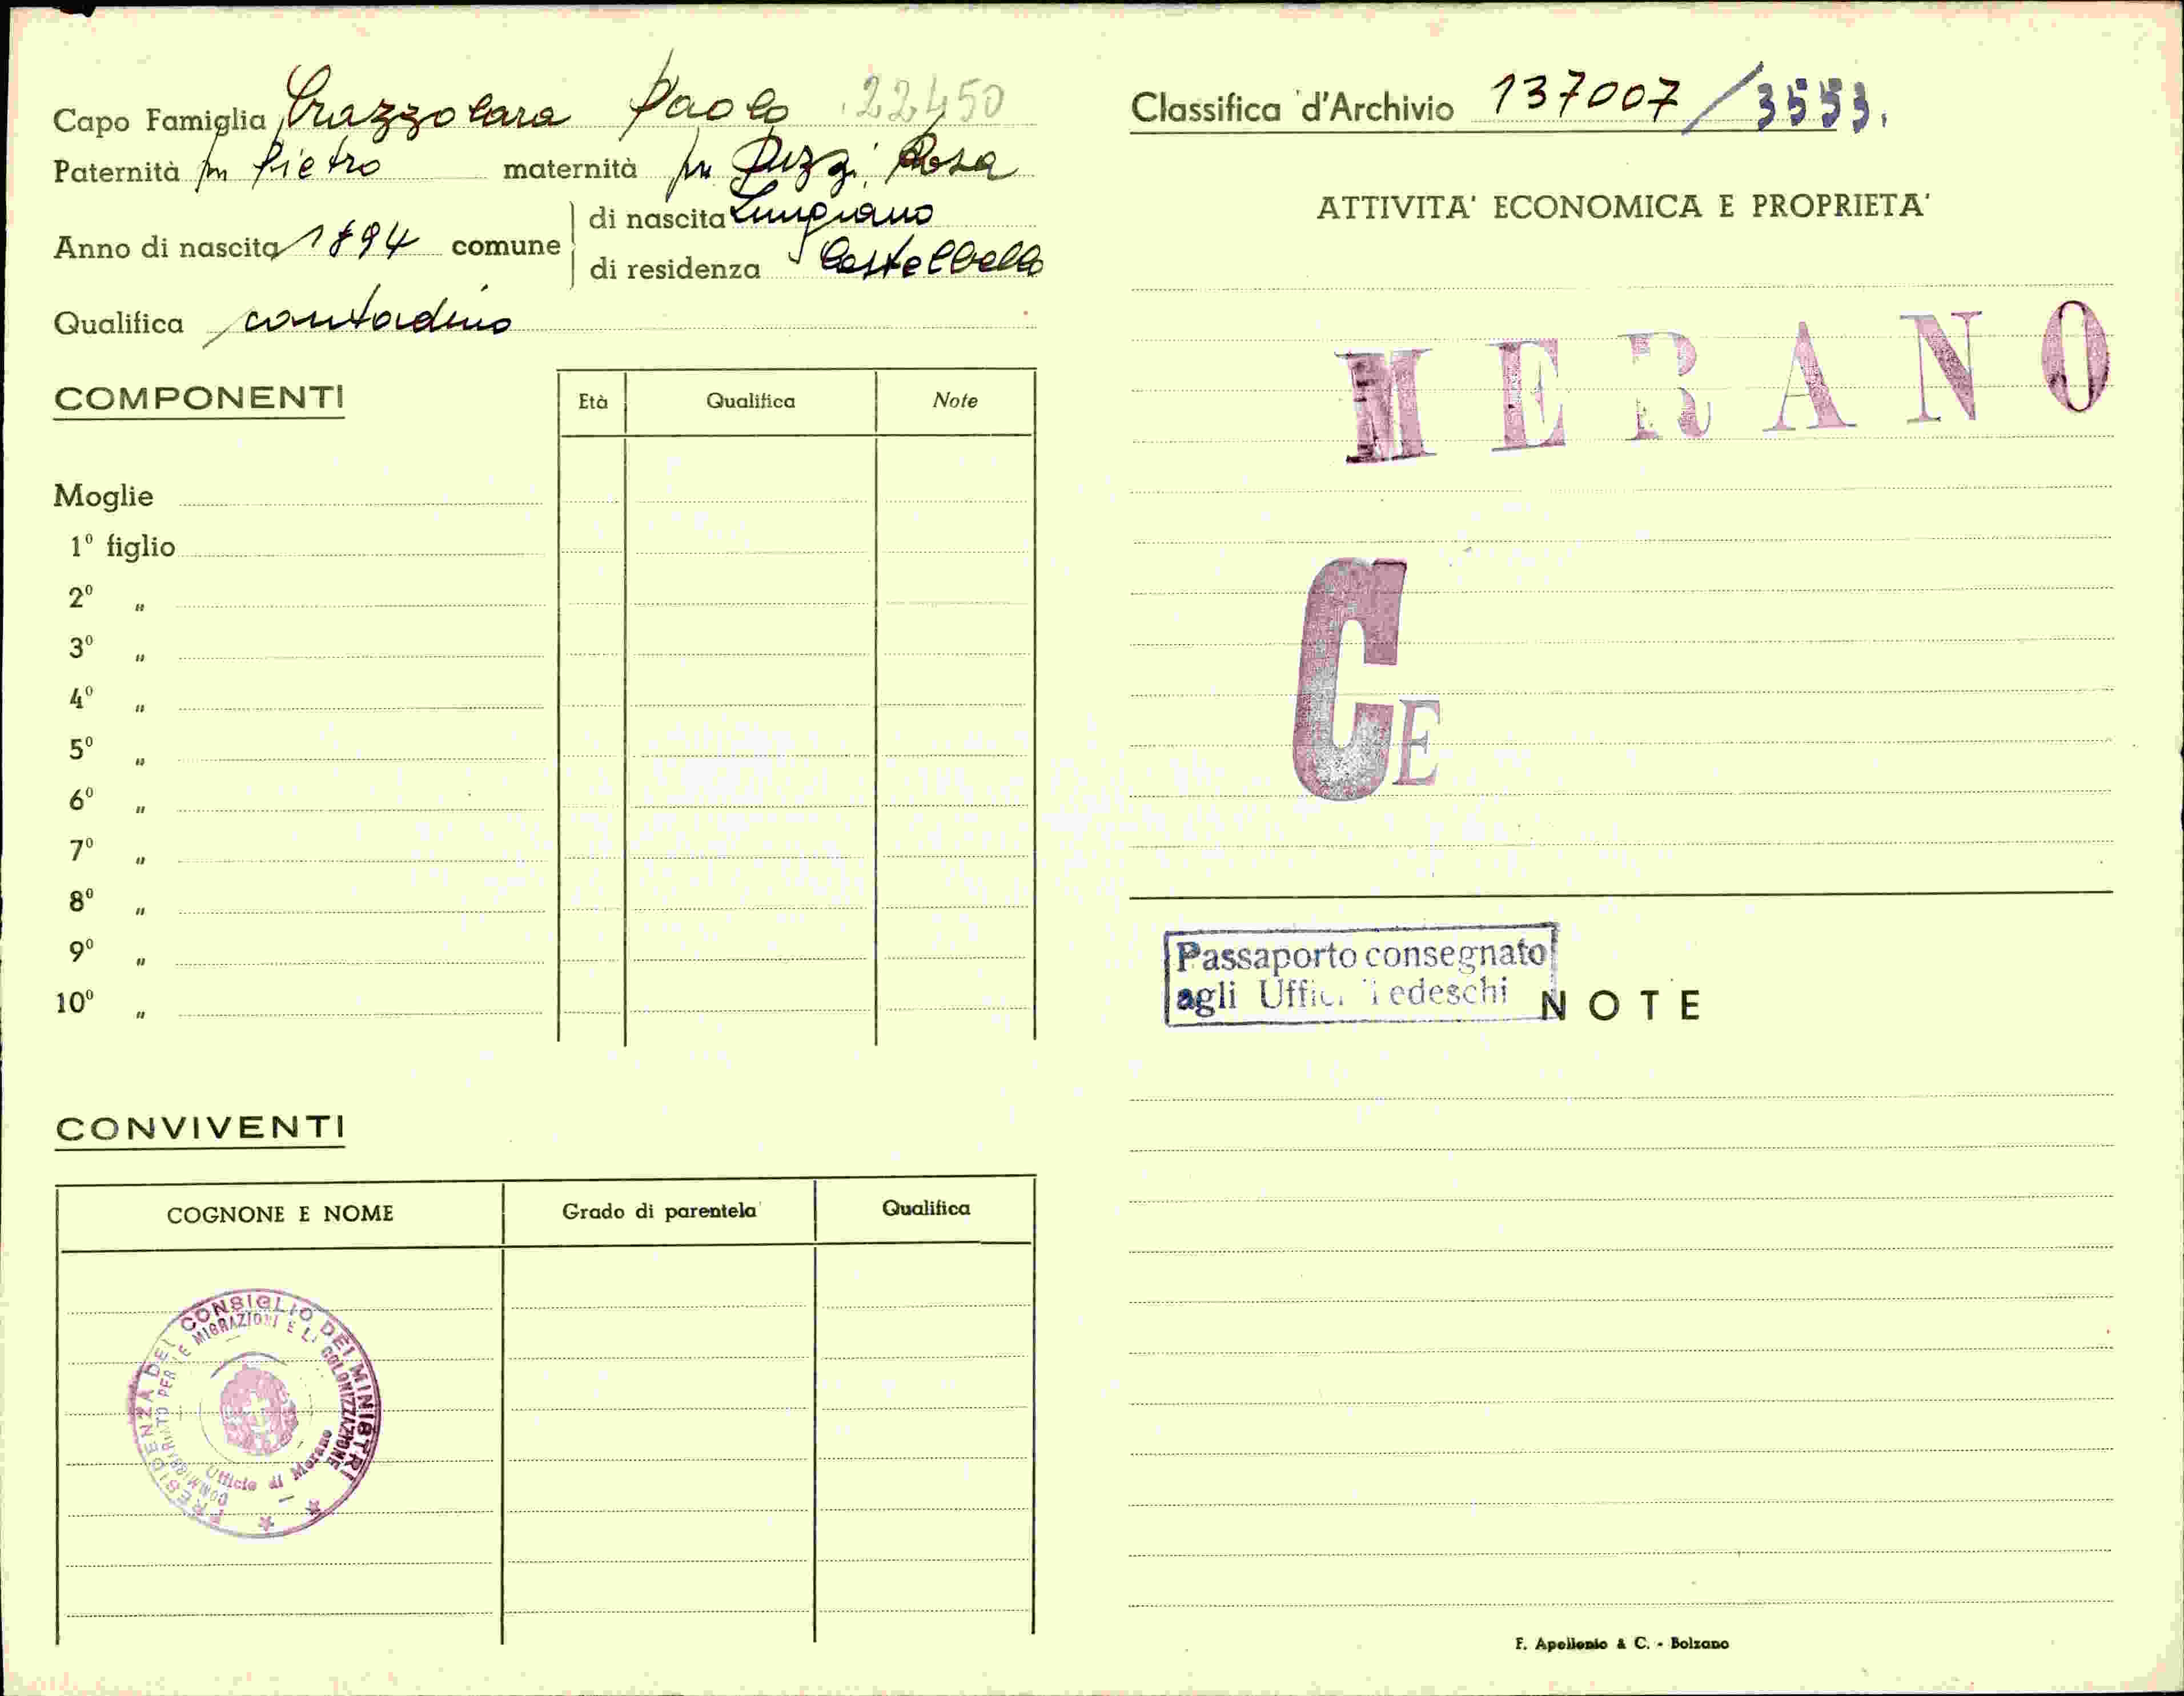 Capo Famiglia Crazzolara Paolo 22450
Paternità fu Pietro maternità fu Pizzi Rosa
Anno di nascita 1894 comune
di nascita
di residenza Castelbello
Qualifica contadino
COMPONENTI
Età Qualifica Note
Moglie
1º figlio
2º "
3º "
4º "
5º "
6º "
7º "
8º "
9º "
10º "
CONVIVENTI
COGNONE E NOME Grado di parentela Qualifica
PRESIDENZA DEL CONSIGLIO DEI MINISTRI
COMMISSARIATO PER LE MIGRAZIONI E LA COLONIZZAZIONE
Ufficio di Merano
Classifica d'Archivio 137007/3553.
ATTIVITA' ECONOMICA E PROPRIETA'
MERANO
CE
Passaporto consegnato
agli Uffici Tedeschi
NOTE
F. Apollonio & C. - Bolzano